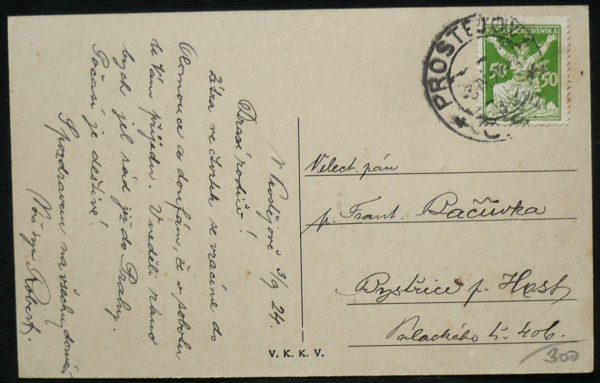 V Prostějově 3/9 24.
Drazí rodiče!
Zítra ve čtvrtek se vracíme do
Olomouce a doufám, že v sobotu
k Vám přijedu. V neděli ráno
bych jel rád již do Prahy.
Počasí je deštivé!
S pozdravem na všechny doma,
Váš syn Robert.
PROSTĚJOV
ČESKOSLOVENSKA
50 50
Velect. pán
p. Frant. Bačůvka
Bystřice p. Host.
Palackého č. 406.
300
V. K. K. V.